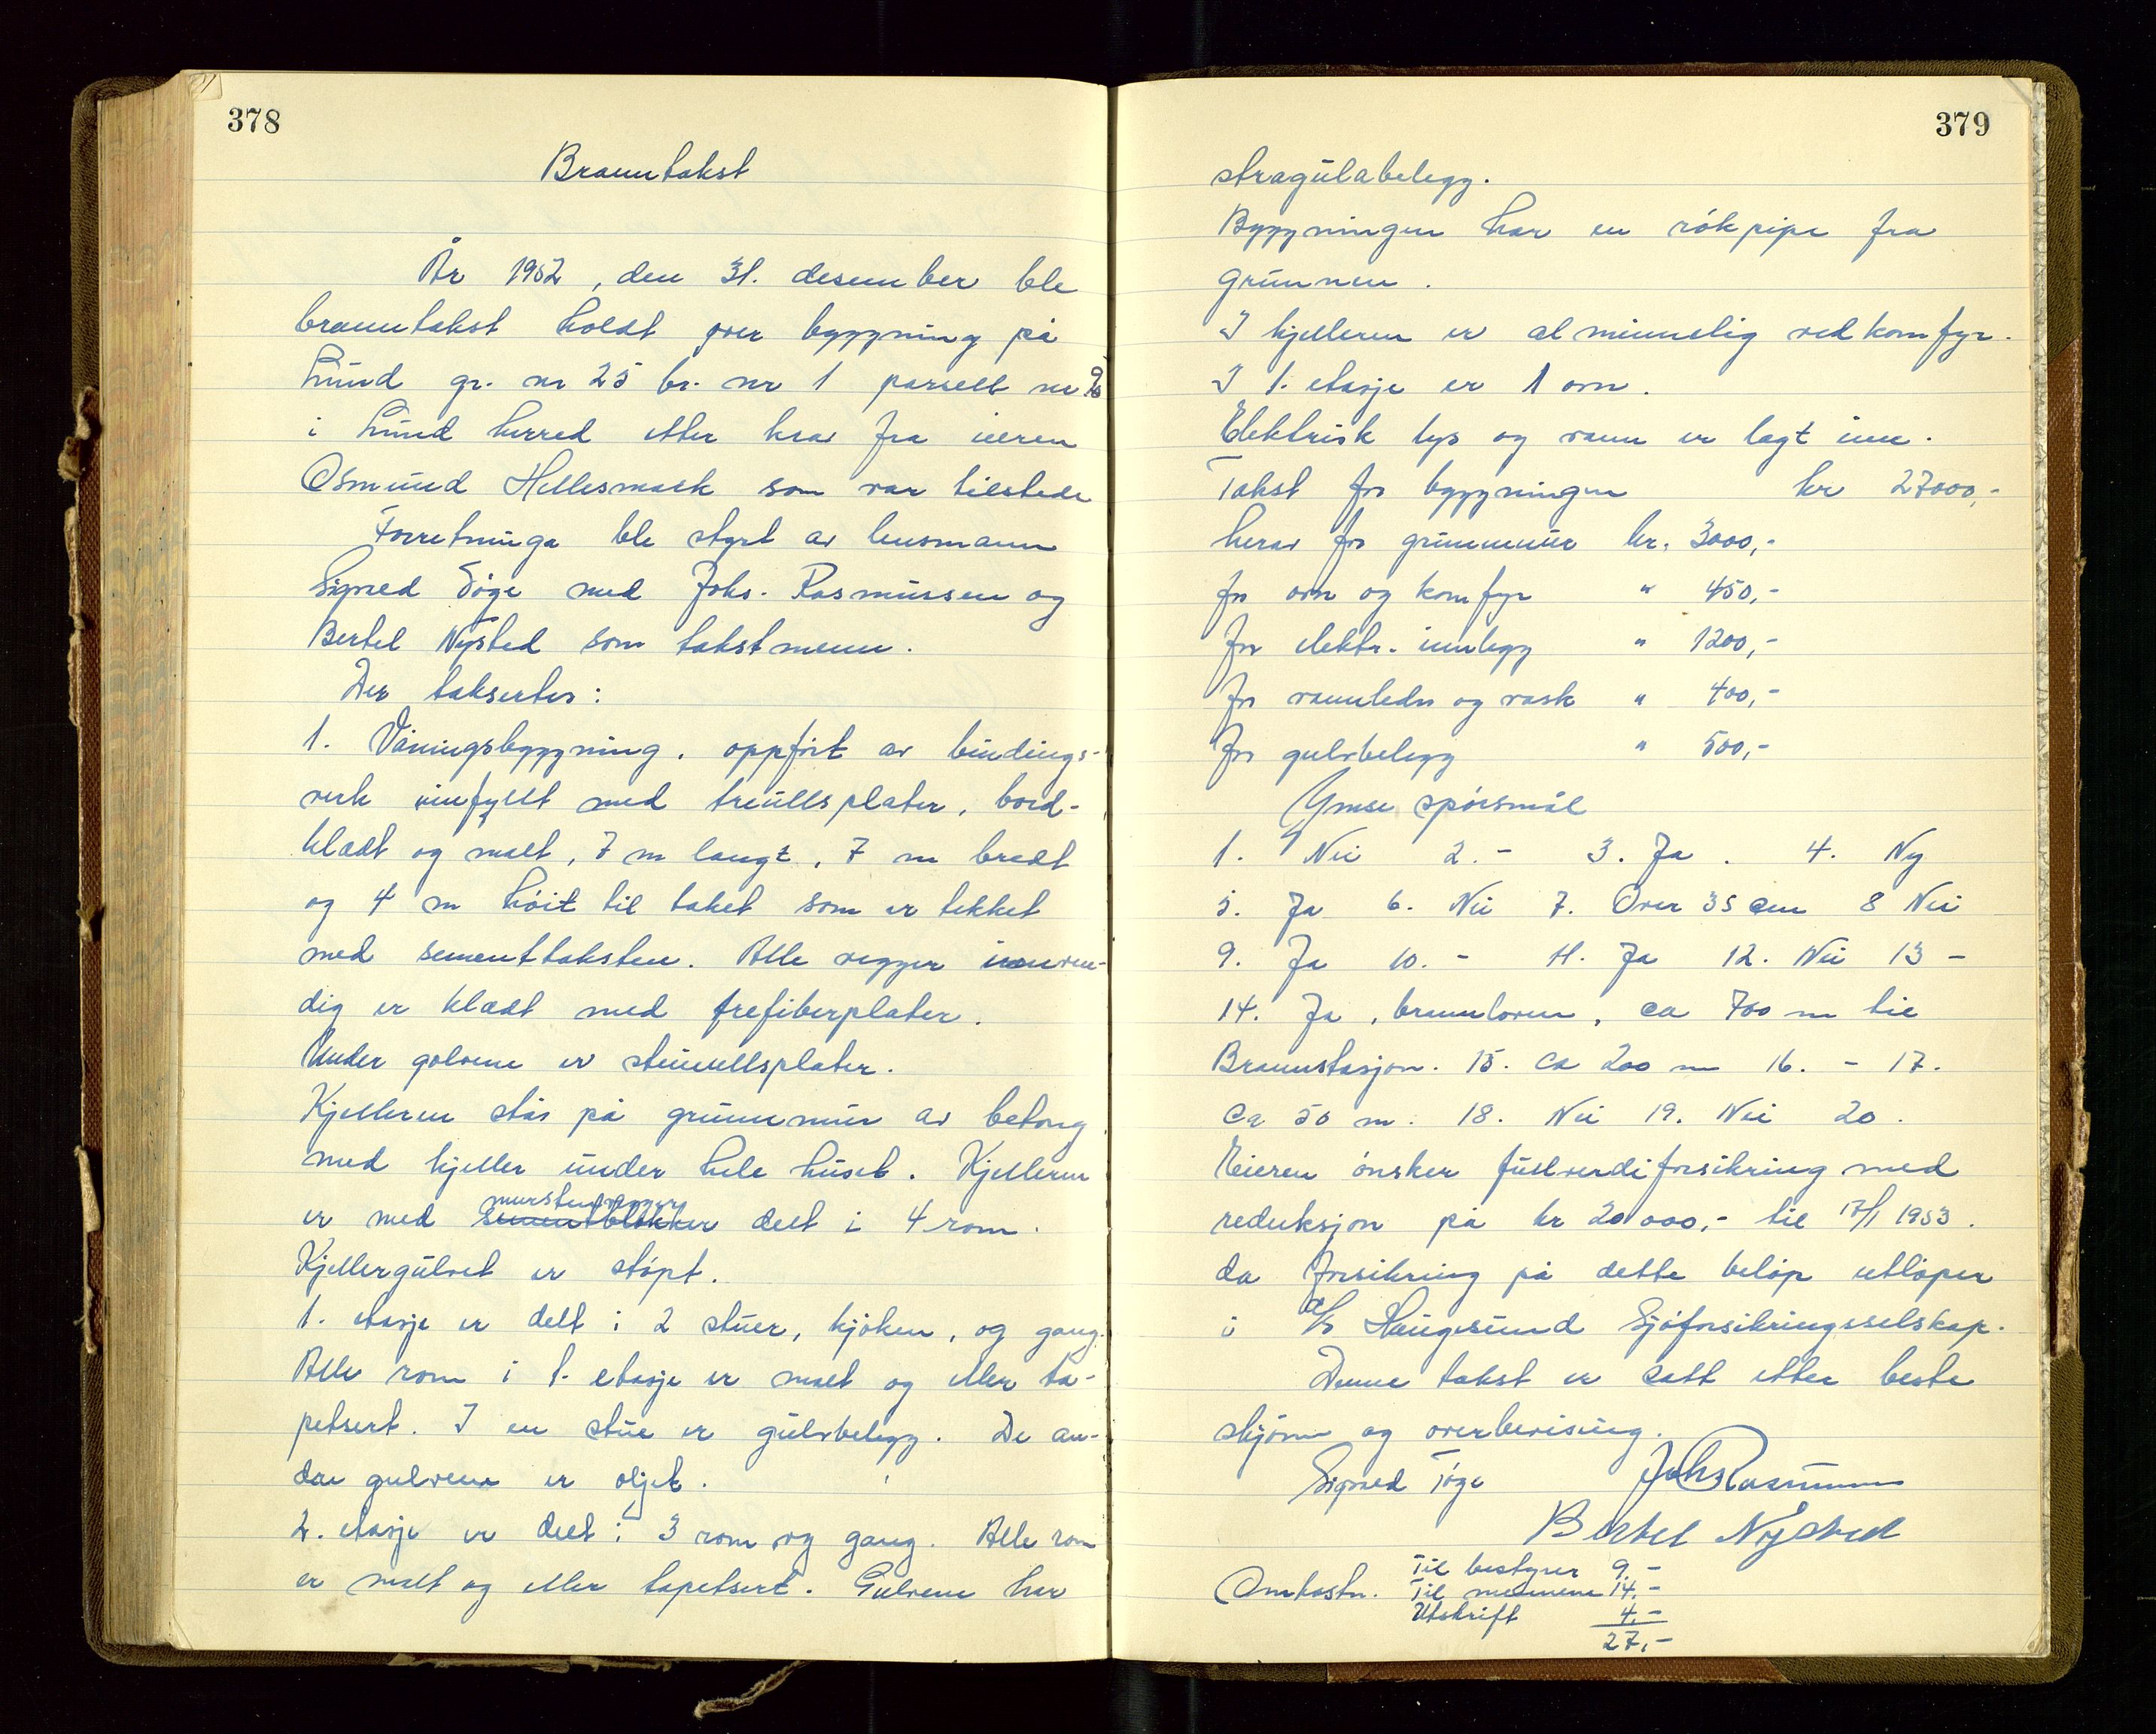 378
Branntakst
År 1952, den 31. desember ble
branntakst holdt over byggning på
Lund gr. nr 25 br. nr 1 parsell nr
i Lund herred etter krav fra eieren
Osmund Hellesmark som var tilstede
Forretninga ble styrt av lensmann
Sigved Töge med Johs. Rasmussen og
Bertel Nysted som takstmenn.
Der taksertes:
1. Våningsbyggning. oppfört av bindings-
verk innfyllt med treullsplater, bord-
klædt og malt, 7 m langt, 7 m bredt
og 4 m höit til taket som er tekket
med sementtaksten. Alle vegger innven-
dig er klædt med trefiberplater.
Under golvene er steinullsplater.
Kjelleren står på grunnmur av betong
med kjeller under hele huset. Kjelleren
murstensvegger
er med sementblokker delt i 4 rom.
Kjellergulvet er stöpt.
1. etasje er delt i 2 stuer, kjöken, og gang.
Alle rom i 1. etasje er malt og eller ta-
petsert. I en stue er gulvbelegg. De an-
dre gulvene er oljet.
2. etasje er delt i 3 rom og gang. Alle rom
er malt og eller tapetsert. Gulvene har
379
stragulabelegg.
Byggningen har en rökpipe fra
grunnen.
I kjelleren er alminnelig vedkomfyr.
I 1. etasje er 1 ovn.
Elektrisk lys og vann er lagt inn.
Takst for byggningen kr 27000,-
herav for grunnmur kr. 3000,-
for ovn og komfyr " 450,-
for elektr. innlegg " 1200,-
for vannledn og vask " 400,-
for gulvbelegg " 500,-
Ymse spörsmål
1. Nei 2. - 3. Ja. 4. Ny
5. Ja 6. Nei 7. Over 35 cm 8 Nei
9. Ja 10. - 11. Ja 12. Nei 13 -
14. Ja, brannloven, ca 700 m til
Brannstasjon. 15. ca 200 m 16. - 17.
ca 50 m. 18. Nei 19. Nei 20.
Eieren önsker fullverdiforsikring med
reduksjon på kr 20000,- til 17/1 1953.
da forsikring på dette belöp utlöper
i A/S Haugesund Sjöforsikringsselskap.
Denne takst er satt etter beste
skjönn og overbevisning.
Sigved Töge Johs Rasmussen
Bertel Nysted
Omkostn. Til bestyrer 9.-
Til mennene 14.-
Utskrift 4.-
27,-